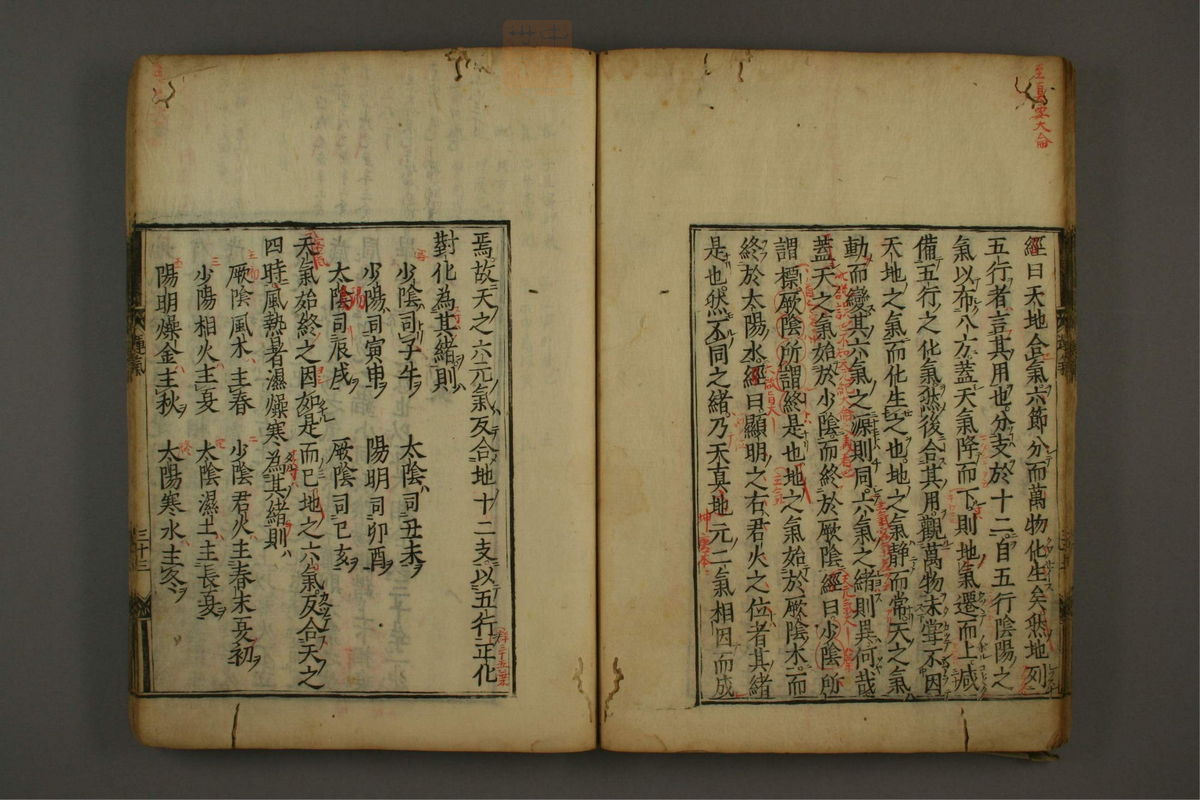 經曰天地合氣六節分而萬物化生矣然地列
五行者言其用也分支於十二自五行陰陽之
氣以布八方蓋天氣降而下則地氣遷而上咸
備五行之化氣然後合其用觀萬物未甞不因
天地之氣而化生之也地之氣靜而常天之氣
動而變其六氣之源則同六氣之緒則異何哉
蓋天之氣始於少陰而終於厥陰經曰少陰所
謂標厥陰所謂終是也地之氣始於厥陰木而
終於太陽水經曰顯明之右君火之位者其緒
是也然不同之緒乃天真地元二氣相因而成
焉故天之六元氣反合地十二支以五行正化
對化為其緒則
少陰司子午 太陰司丑未
少陽司寅申 陽明司卯酉
太陽司辰戌 厥陰司巳亥
天氣始終之因如是而已地之六氣反合天之
四時風熱暑濕燥寒為其緒則
厥陰風木主春 少陰君火主春末夏初
少陽相火主夏 太陰濕土主長夏
陽明燥金主秋 太陽寒水主冬
三十三